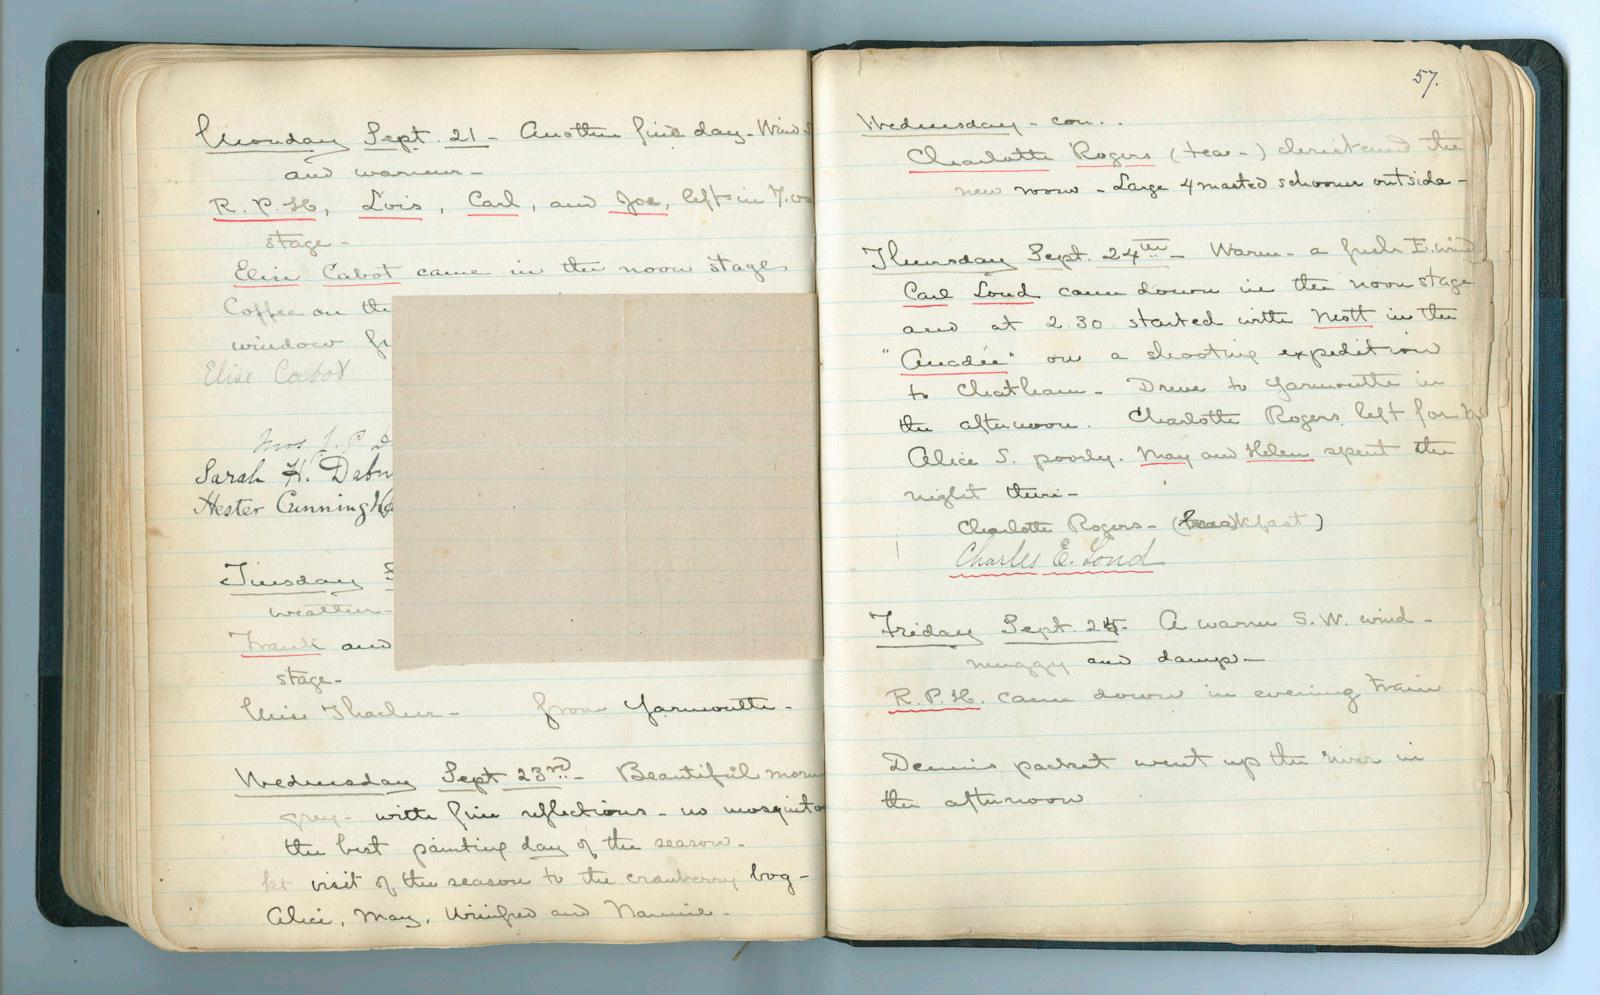 Monday Sept. 21 - Another fine day - Wind S
and warmer -
R. P. H, Lois, Carl, and Joe, left in 7.00
stage -
Elise Cabot came in the noon stage
Coffee on the
window
Elise Cabot
Mrs J. P. D
Sarah H. Dabn
Hester Cunningha
Tuesday S
weather -
Frank and
stage -
Miss Thacher - from Yarmouth -
Wednesday Sept 23rd - Beautiful morn
grey - with fine reflections - no mosquito
the best painting day of the season -
1st visit of the season to the cranberry bog -
Alice, May, Winifred and Nannie -
57.
Wednesday - con..
Charlotte Rogers (tea -) christened the
new room - Large 4 masted schooner outside -
Thursday Sept. 24th - Warm - a fresh E. wind
Carl Loud came down in the noon stage
and at 2.30 started with Nott in the
" " on a shooting expedition
to Chatham - Drove to Yarmouth in
the afternoon. Charlotte Rogers left for
Alice S. poorly. May and Helen spent the
night there -
Charlotte Rogers - (breakfast)
Charles E. Loud
Friday Sept. 25 - A warm S. W. wind -
muggy and damp -
R. P. H. came down in evening train
Dennis packet went up the river in
the afternoon